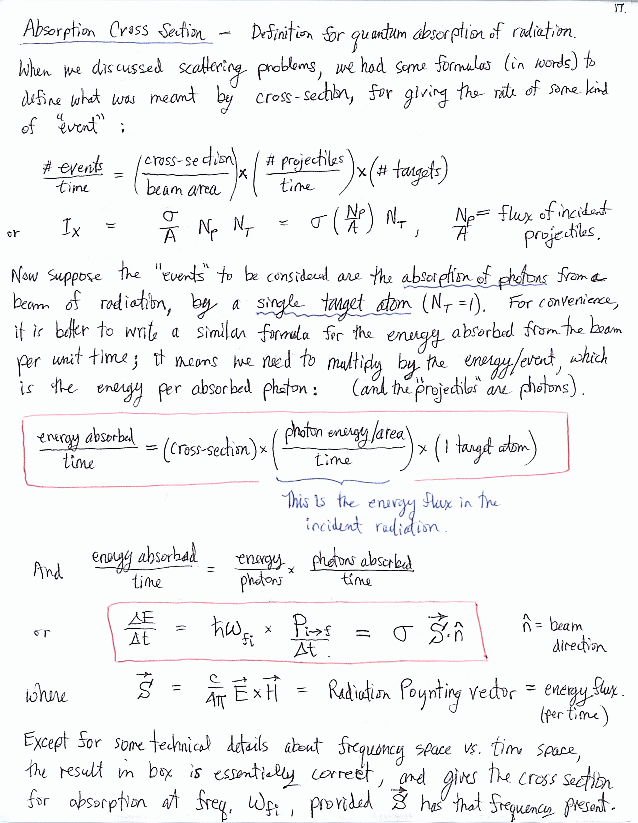 17.
Absorption Cross Section — Definition for quantum absorption of radiation.
When we discussed scattering problems, we had some formulas (in words) to
define what was meant by cross-section, for giving the rate of some kind
of "event":
# events/time = (cross-section/beam area) × (# projectiles/time) × (# targets)
or I_x = σ/A N_P N_T = σ (N_P/A) N_T , N_P/A = flux of incident projectiles.
Now suppose the "events" to be considered are the absorption of photons from a
beam of radiation, by a single target atom (N_T = 1). For convenience,
it is better to write a similar formula for the energy absorbed from the beam
per unit time; it means we need to multiply by the energy/event, which
is the energy per absorbed photon: (and the "projectiles" are photons).
energy absorbed/time = (cross-section) × (photon energy/area / time) × (1 target atom)
This is the energy flux in the
incident radiation.
And energy absorbed/time = energy/photons × photons absorbed/time
or ΔE/Δt = ħω_fi × P_i→f/Δt = σ S⃗·n̂ n̂ = beam direction
where S⃗ = c/4π E⃗ × H⃗ = Radiation Poynting vector = energy flux. (per time)
Except for some technical details about frequency space vs. time space,
the result in box is essentially correct, and gives the cross section
for absorption at freq. ω_fi, provided S⃗ has that frequency present.